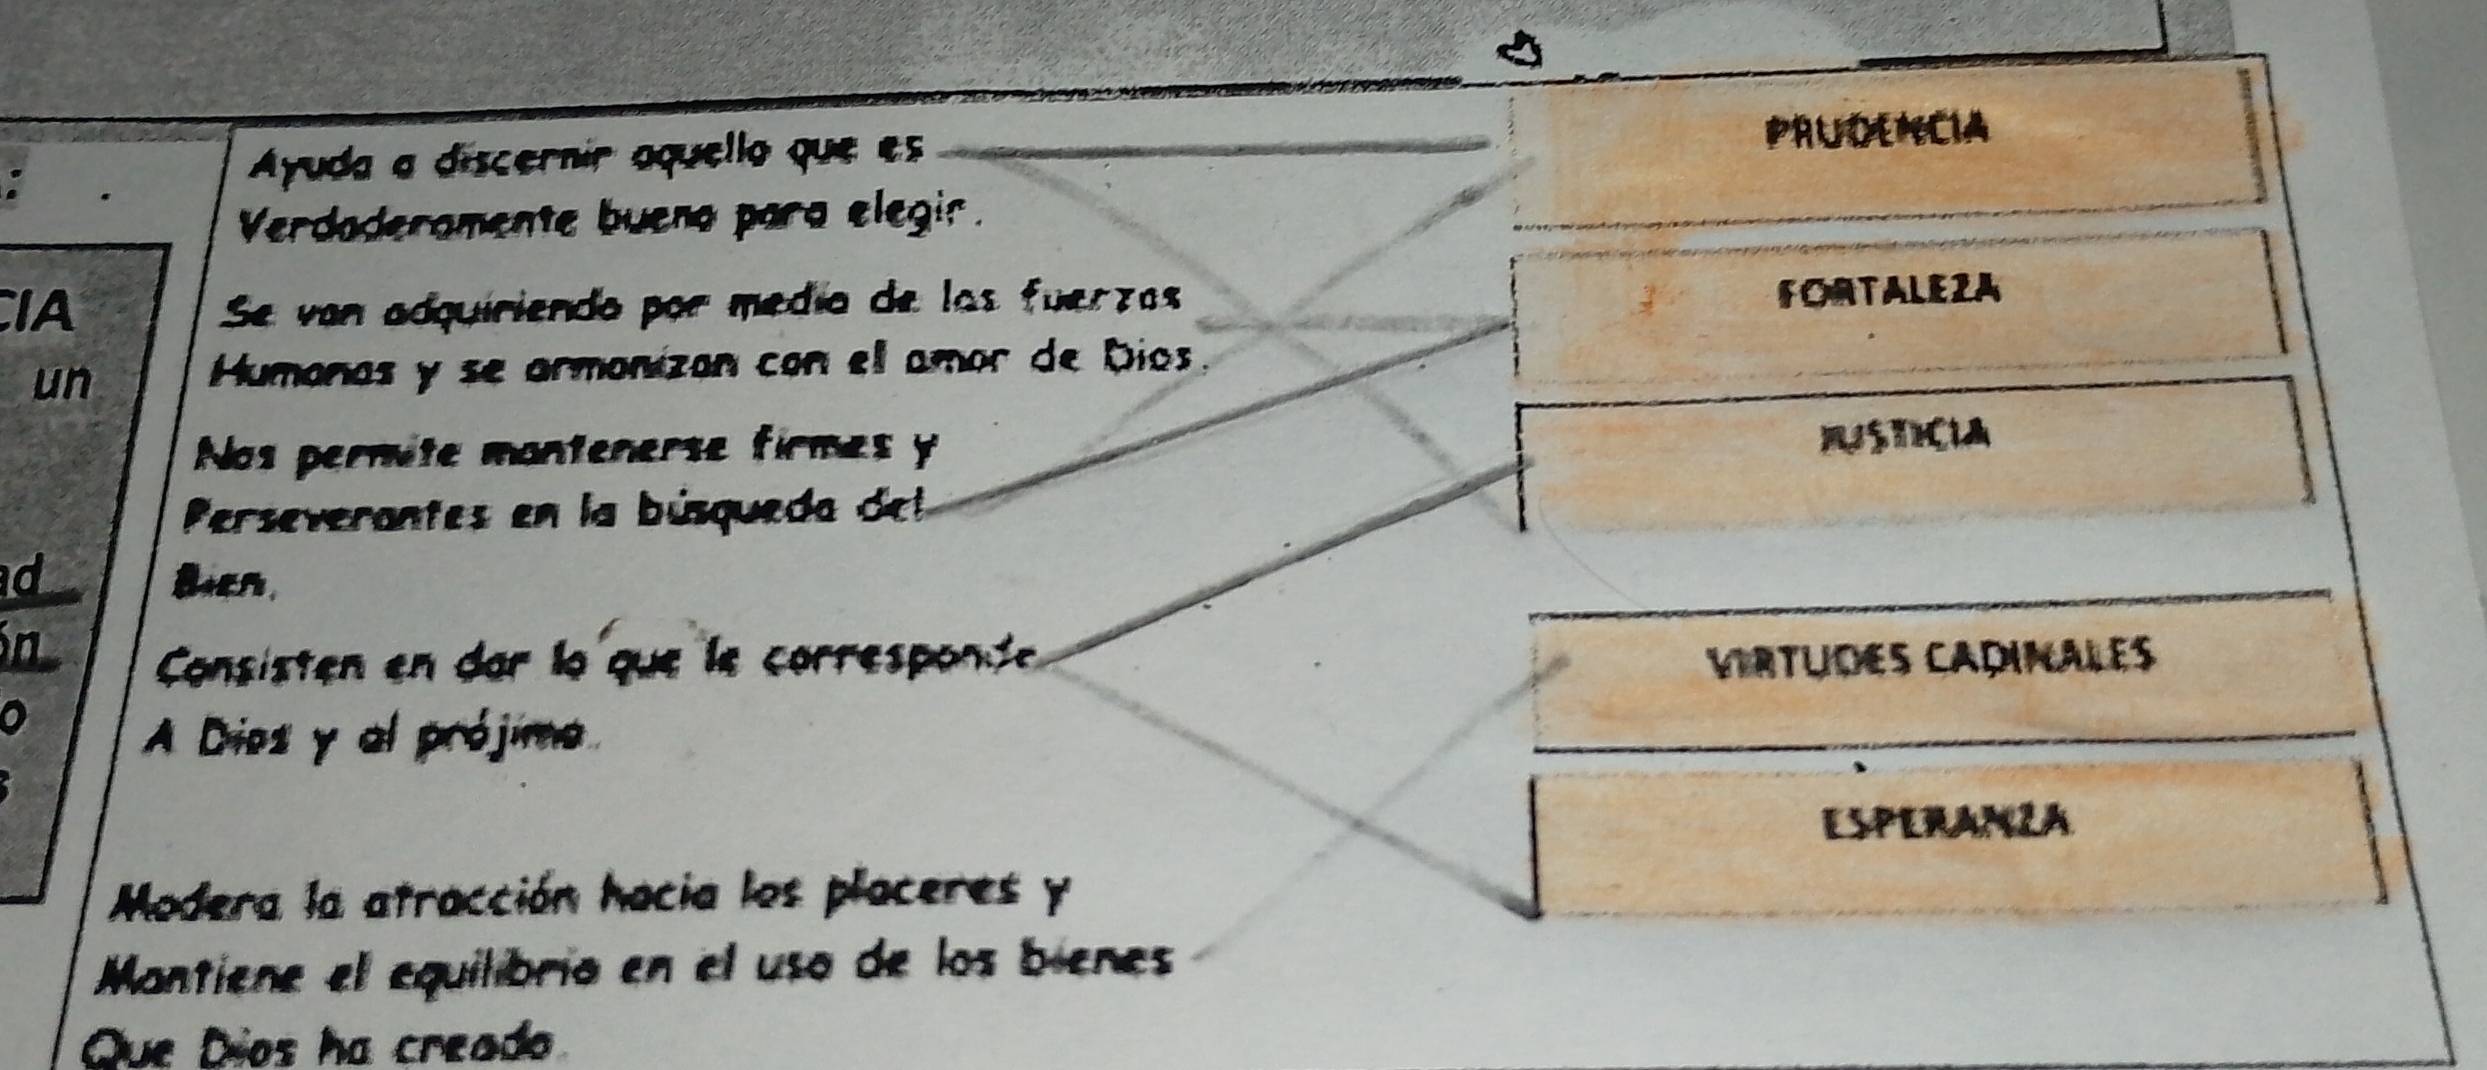 CIA
un
ad
ón
o
Ayuda a discernir aquello que es
Verdaderamente bueno para elegir.
Se van adquiriendo por medio de las fuerzas
Humanas y se armonizan con el amor de Dios.
Nos permite mantenerse firmes y
Perseverantes en la búsqueda del
Bien.
Consisten en dar lo que le corresponde
A Dios y al prójimo.
Modera la atracción hacia los placeres y
Mantiene el equilibrio en el uso de los bienes
Que Dios ha creado
PRUDENCIA
FORTALEZA
JUSTICIA
VIRTUDES CADINALES
ESPERANZA